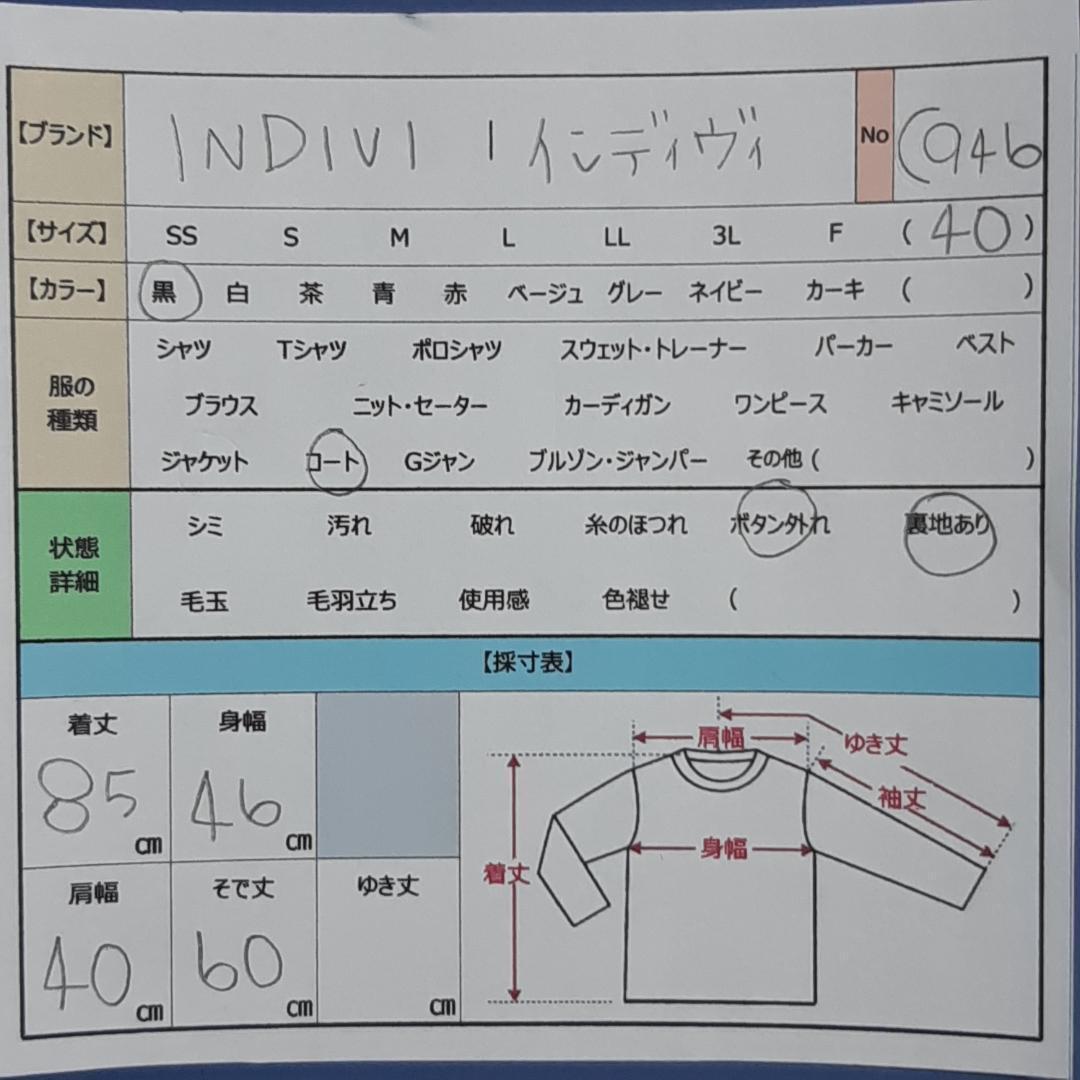 【ブランド】 INDIVI | インディヴィ No C946
【サイズ】 SS S M L LL 3L F (40)
【カラー】 黒 白 茶 青 赤 ベージュ グレー ネイビー カーキ ( )
服の種類
シャツ Tシャツ ポロシャツ スウェット・トレーナー パーカー ベスト
ブラウス ニット・セーター カーディガン ワンピース キャミソール
ジャケット コート Gジャン ブルゾン・ジャンパー その他 ( )
状態詳細
シミ 汚れ 破れ 糸のほつれ ボタン外れ 裏地あり
毛玉 毛羽立ち 使用感 色褪せ ( )
【採寸表】
着丈 身幅
85cm 46cm
肩幅 そで丈 ゆき丈
40cm 60cm cm
肩幅 ゆき丈
袖丈
身幅
着丈